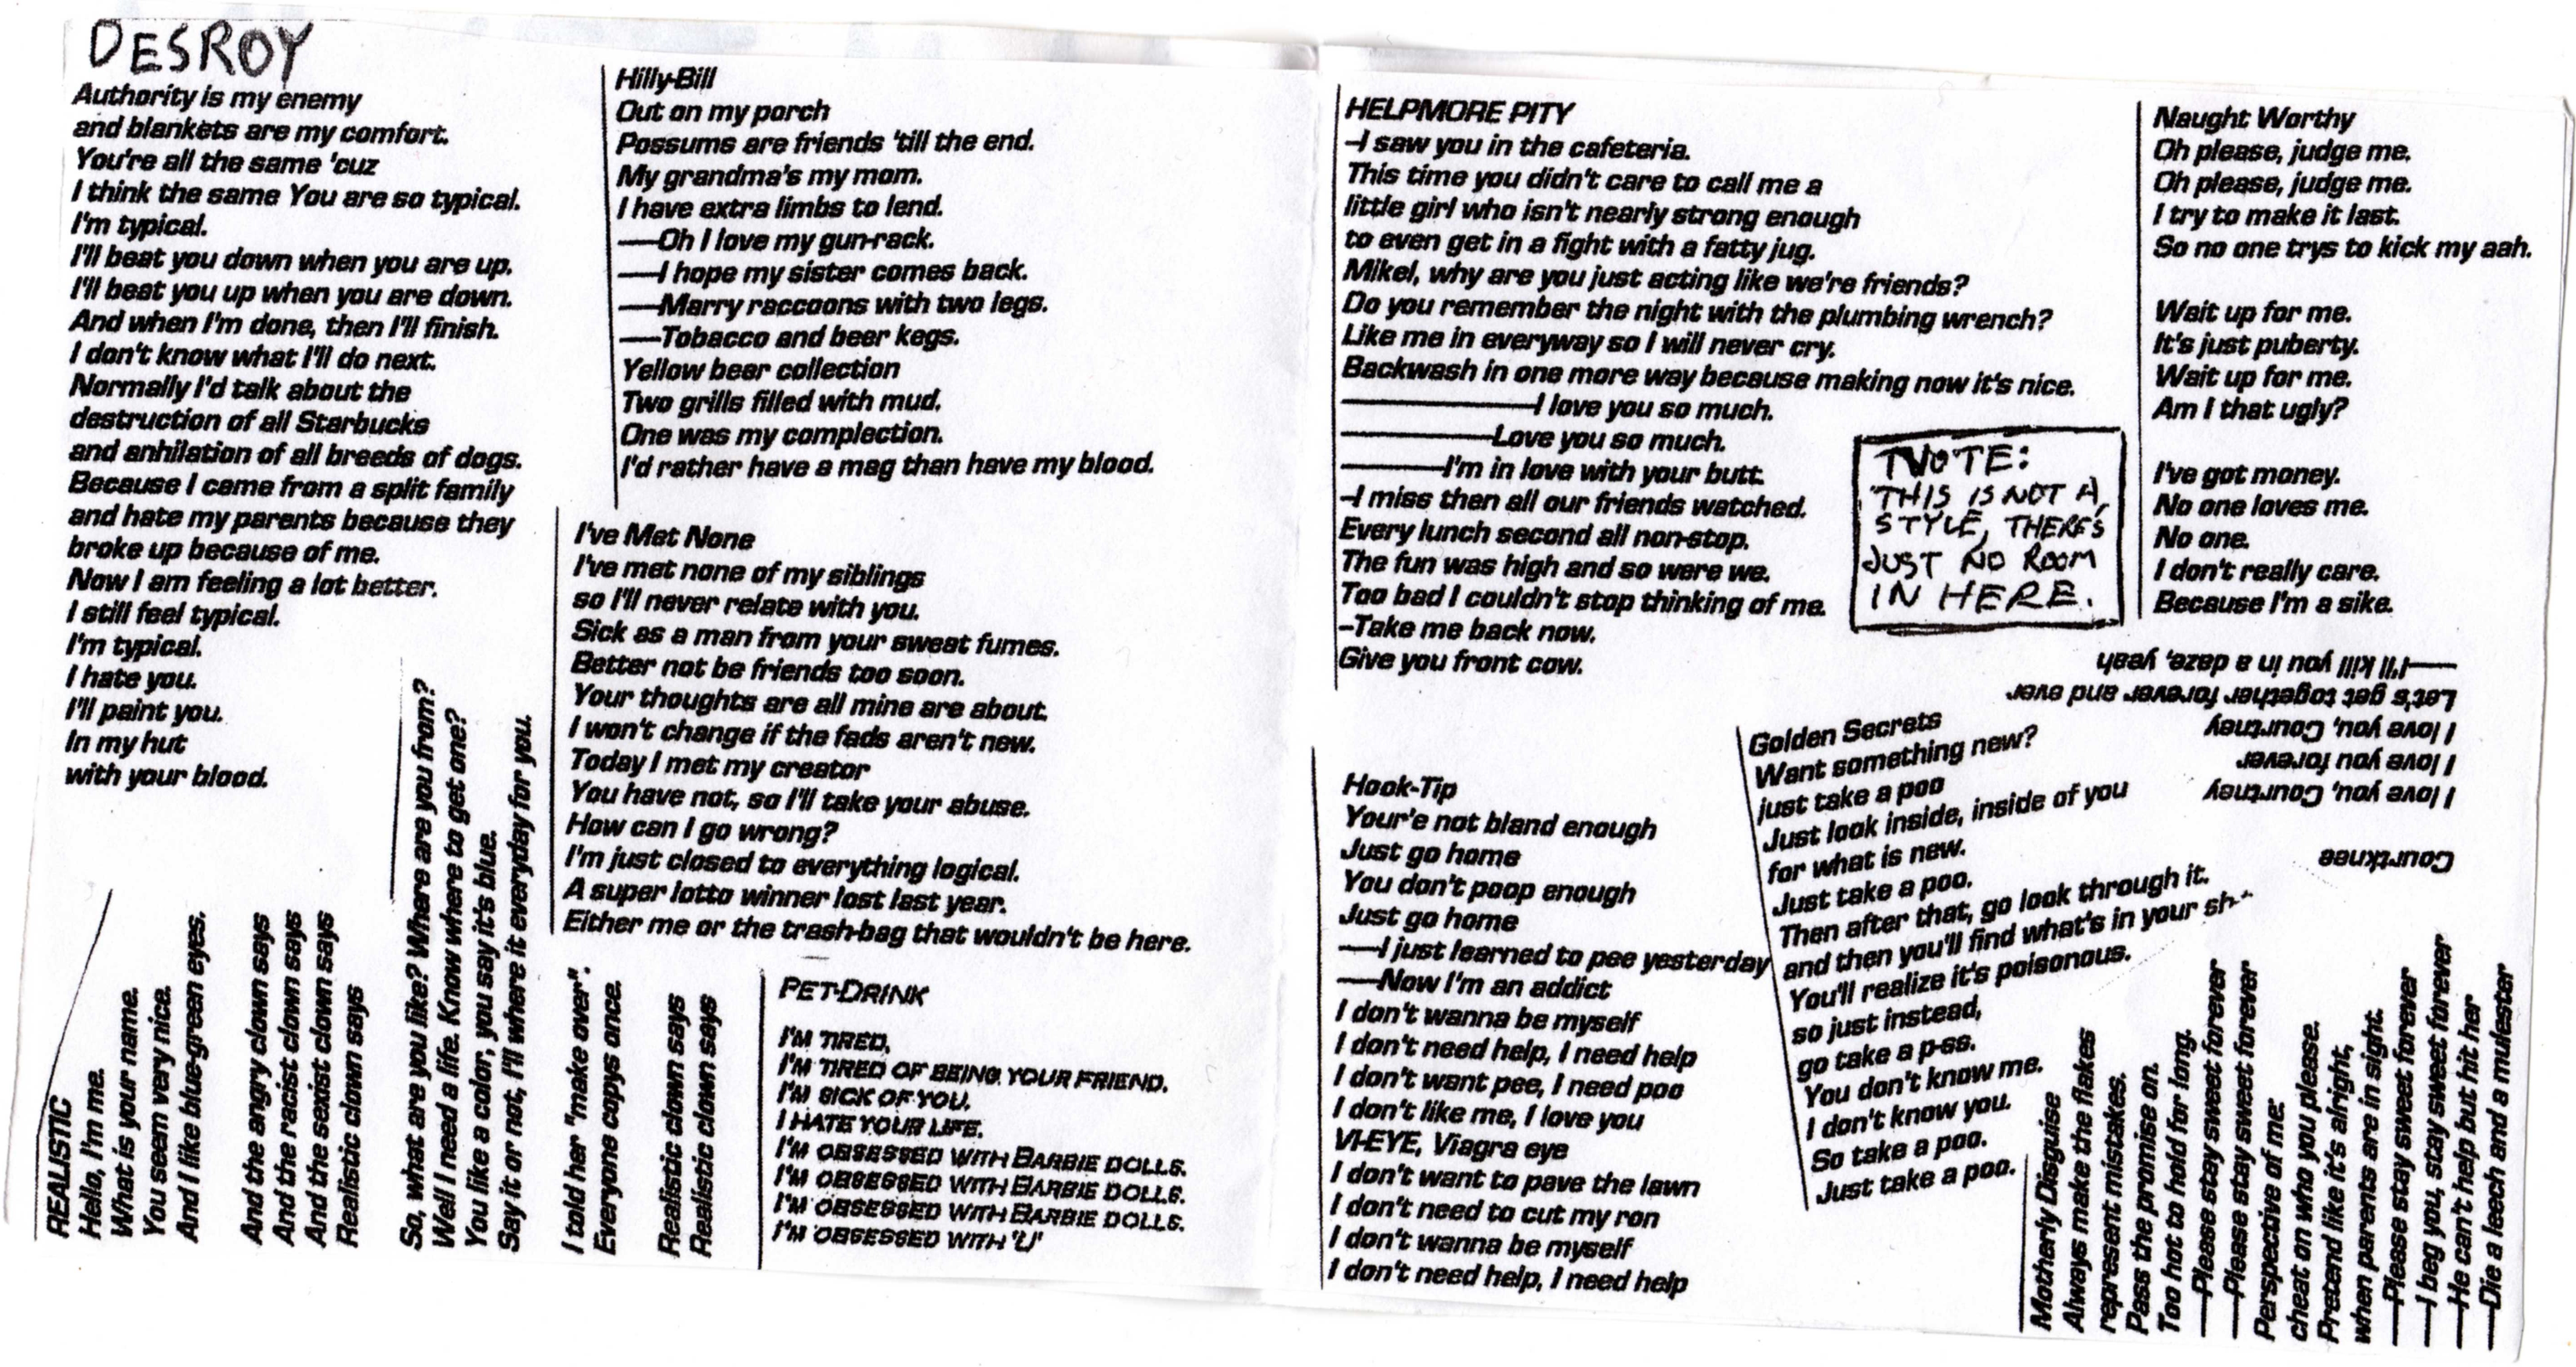 DESROY
Authority is my enemy
and blankets are my comfort.
You're all the same 'cuz
I think the same You are so typical.
I'm typical.
I'll beat you down when you are up.
I'll beat you up when you are down.
And when I'm done, then I'll finish.
I don't know what I'll do next.
Normally I'd talk about the
destruction of all Starbucks
and anhilation of all breeds of dogs.
Because I came from a split family
and hate my parents because they
broke up because of me.
Now I am feeling a lot better.
I still feel typical.
I'm typical.
I hate you.
I'll paint you.
In my hut
with your blood.
REALISTIC
Hello, I'm me.
What is your name.
You seem very nice.
And I like blue-green eyes.
And the angry clown says
And the racist clown says
And the sexist clown says
Realistic clown says
So, what are you like? Where are you from?
Well I need a life. Know where to get one?
You like a color, you say it's blue.
Say it or not, I'll where it everyday for you.
I told her "make over".
Everyone copys once.
Realistic clown says
Realistic clown says
Hilly-Bill
Out on my porch
Possums are friends 'till the end.
My grandma's my mom.
I have extra limbs to lend.
—Oh I love my gun-rack.
—I hope my sister comes back.
—Marry raccoons with two legs.
—Tobacco and beer kegs.
Yellow beer collection
Two grills filled with mud.
One was my complection.
I'd rather have a mag than have my blood.
I've Met None
I've met none of my siblings
so I'll never relate with you.
Sick as a man from your sweat fumes.
Better not be friends too soon.
Your thoughts are all mine are about.
I won't change if the fads aren't new.
Today I met my creator
You have not, so I'll take your abuse.
How can I go wrong?
I'm just closed to everything logical.
A super lotto winner lost last year.
Either me or the trash-bag that wouldn't be here.
PET-DRINK
I'M TIRED,
I'M TIRED OF BEING YOUR FRIEND.
I'M SICK OF YOU.
I HATE YOUR LIFE.
I'M OBSESSED WITH BARBIE DOLLS.
I'M OBSESSED WITH BARBIE DOLLS.
I'M OBSESSED WITH BARBIE DOLLS.
I'M OBSESSED WITH 'LI'
HELPMORE PITY
-I saw you in the cafeteria.
This time you didn't care to call me a
little girl who isn't nearly strong enough
to even get in a fight with a fatty jug.
Mikel, why are you just acting like we're friends?
Do you remember the night with the plumbing wrench?
Like me in everyway so I will never cry.
Backwash in one more way because making now it's nice.
—————I love you so much.
————Love you so much.
———I'm in love with your butt.
-I miss then all our friends watched.
Every lunch second all non-stop.
The fun was high and so were we.
Too bad I couldn't stop thinking of me.
-Take me back now.
Give you front cow.
NOTE:
THIS IS NOT A
STYLE, THERE'S
JUST NO ROOM
IN HERE.
Naught Worthy
Oh please, judge me.
Oh please, judge me.
I try to make it last.
So no one trys to kick my aah.
Wait up for me.
It's just puberty.
Wait up for me.
Am I that ugly?
I've got money.
No one loves me.
No one.
I don't really care.
Because I'm a sike.
Hook-Tip
Your'e not bland enough
Just go home
You don't poop enough
Just go home
—I just learned to pee yesterday
—Now I'm an addict
I don't wanna be myself
I don't need help, I need help
I don't want pee, I need poo
I don't like me, I love you
VI-EYE, Viagra eye
I don't want to pave the lawn
I don't need to cut my ron
I don't wanna be myself
I don't need help, I need help
Golden Secrets
Want something new?
just take a poo
Just look inside, inside of you
for what is new.
Just take a poo.
Then after that, go look through it.
and then you'll find what's in your sh--
You'll realize it's poisonous.
so just instead,
go take a p-ss.
You don't know me.
I don't know you.
So take a poo.
Just take a poo.
Courtknee
I love you, Courtney
I love you forever.
I love you, Courtney
Let's get together forever and ever
—I'll kill you in a daze, yeah
Motherly Disguise
Always make the flakes
represent mistakes.
Pass the promise on.
Too hot to hold for long.
—Please stay sweet forever
—Please stay sweet forever
Perspective of me:
cheat on who you please.
Pretend like it's alright,
when parents are in sight.
—Please stay sweet forever
—I beg you, stay sweet forever
—He can't help but hit her
—Die a leech and a mulester